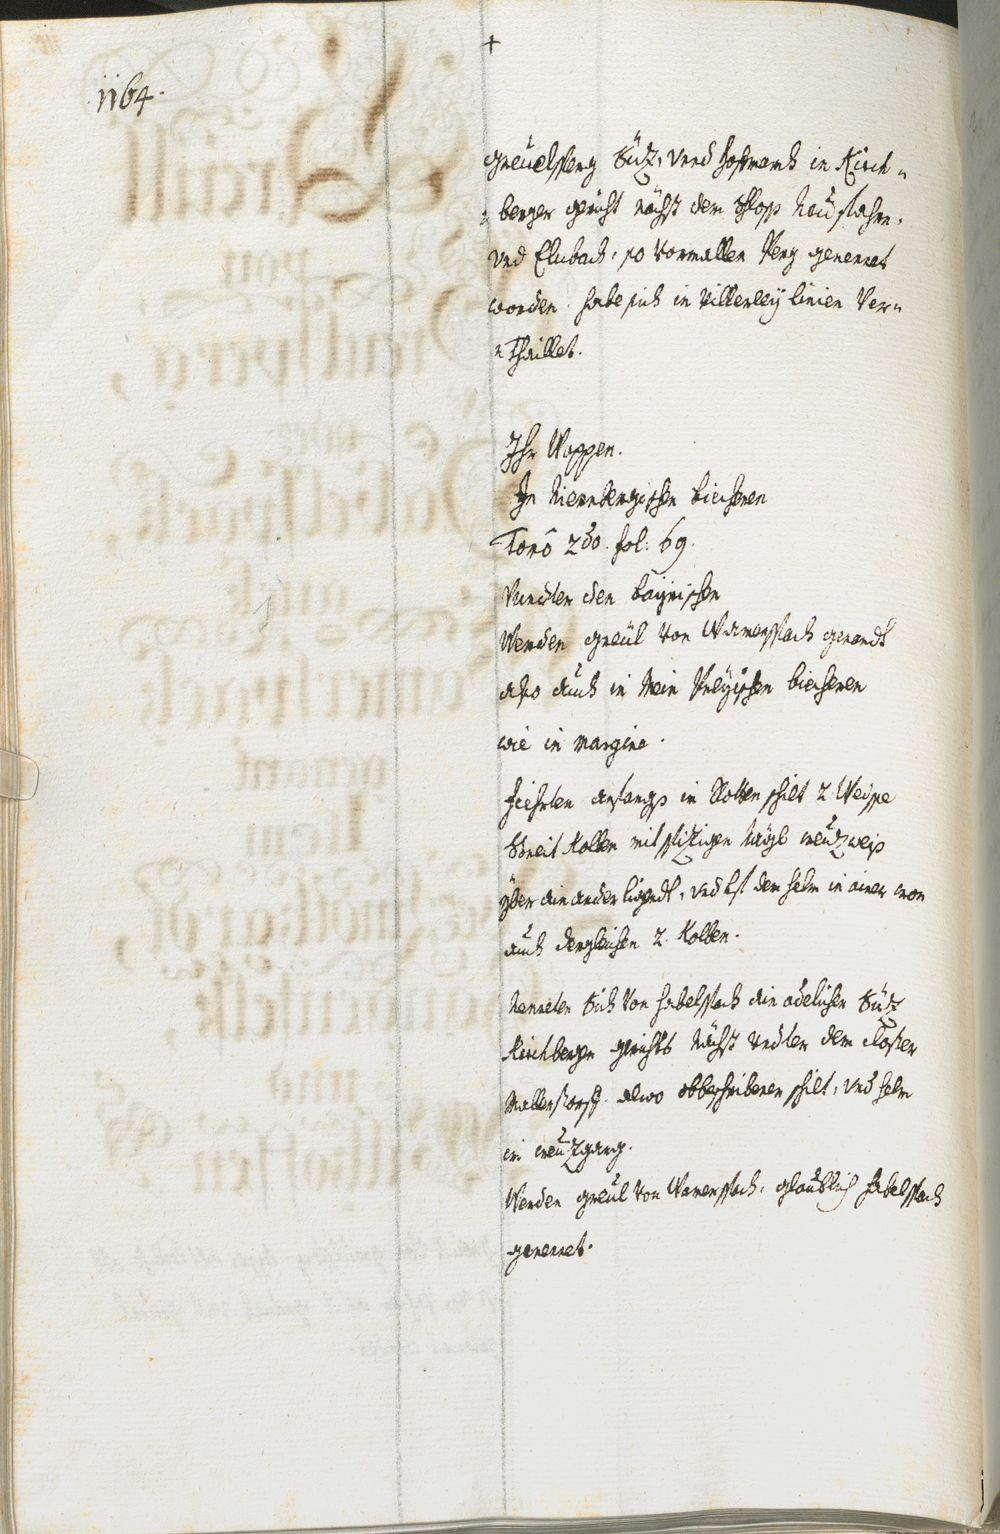 +
1164.
greüelsperg Süz, vnnd hofmarch in Kirch=
=berger gericht nächst dem schloss Neüfahrn,
vnd Elnbach, so vormallen Perg genennet
worden. habe sich in villerleÿ linien ver=
=Thaillet.
Ihr Wappen.
In Niernbergischen biecheren
Tomô 2do. fol: 69.
Vundter den baÿrischen
Werden greül von Wamerspach genandt
also auch in Mein Preÿischen biecheren
wie in margine.
Fiehrten anfangs in Rotten schilt 2. Weisse
Streit Kolben mit spitzigen Nägl creüzweis
yber ainander ligendt, vnd vf dem helm in ainer cron
auch dergleichen 2. Kolben.
Nenneten Sich von habelspach ain adelicher Süz
Kirchberger gerichts Nächst vndter dem Closter
Mallerstorff. alwo obbeschribener schilt, vnd helm
im creüzgang.
Werden greül von Wamerspach, glaublich habelspach
genennet.